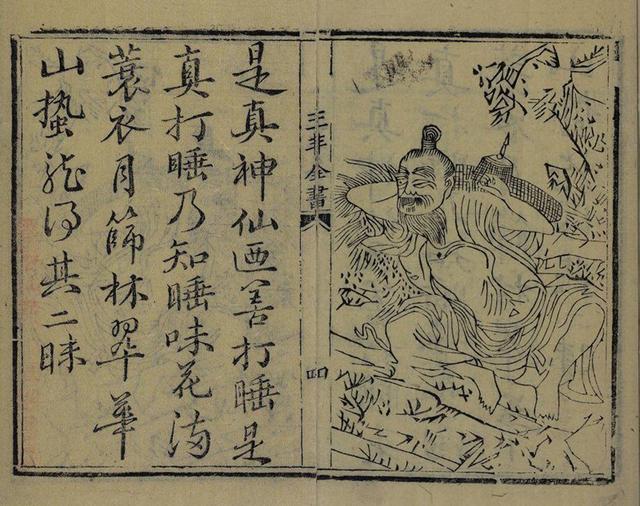 三丰全書
四
是真神仙迺善打睡是
真打睡乃知睡味花满
蓑衣月篩林翠華
山蟄龍得其二昧